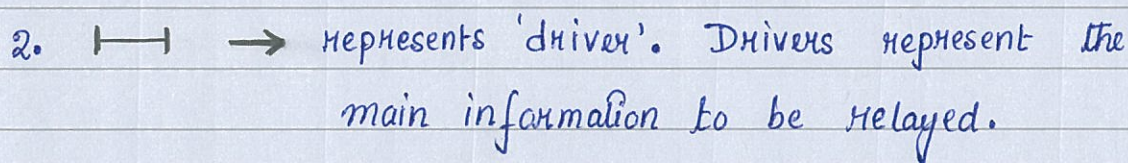 2. |—| → represents 'driver'. Drivers represent the
main information to be relayed.